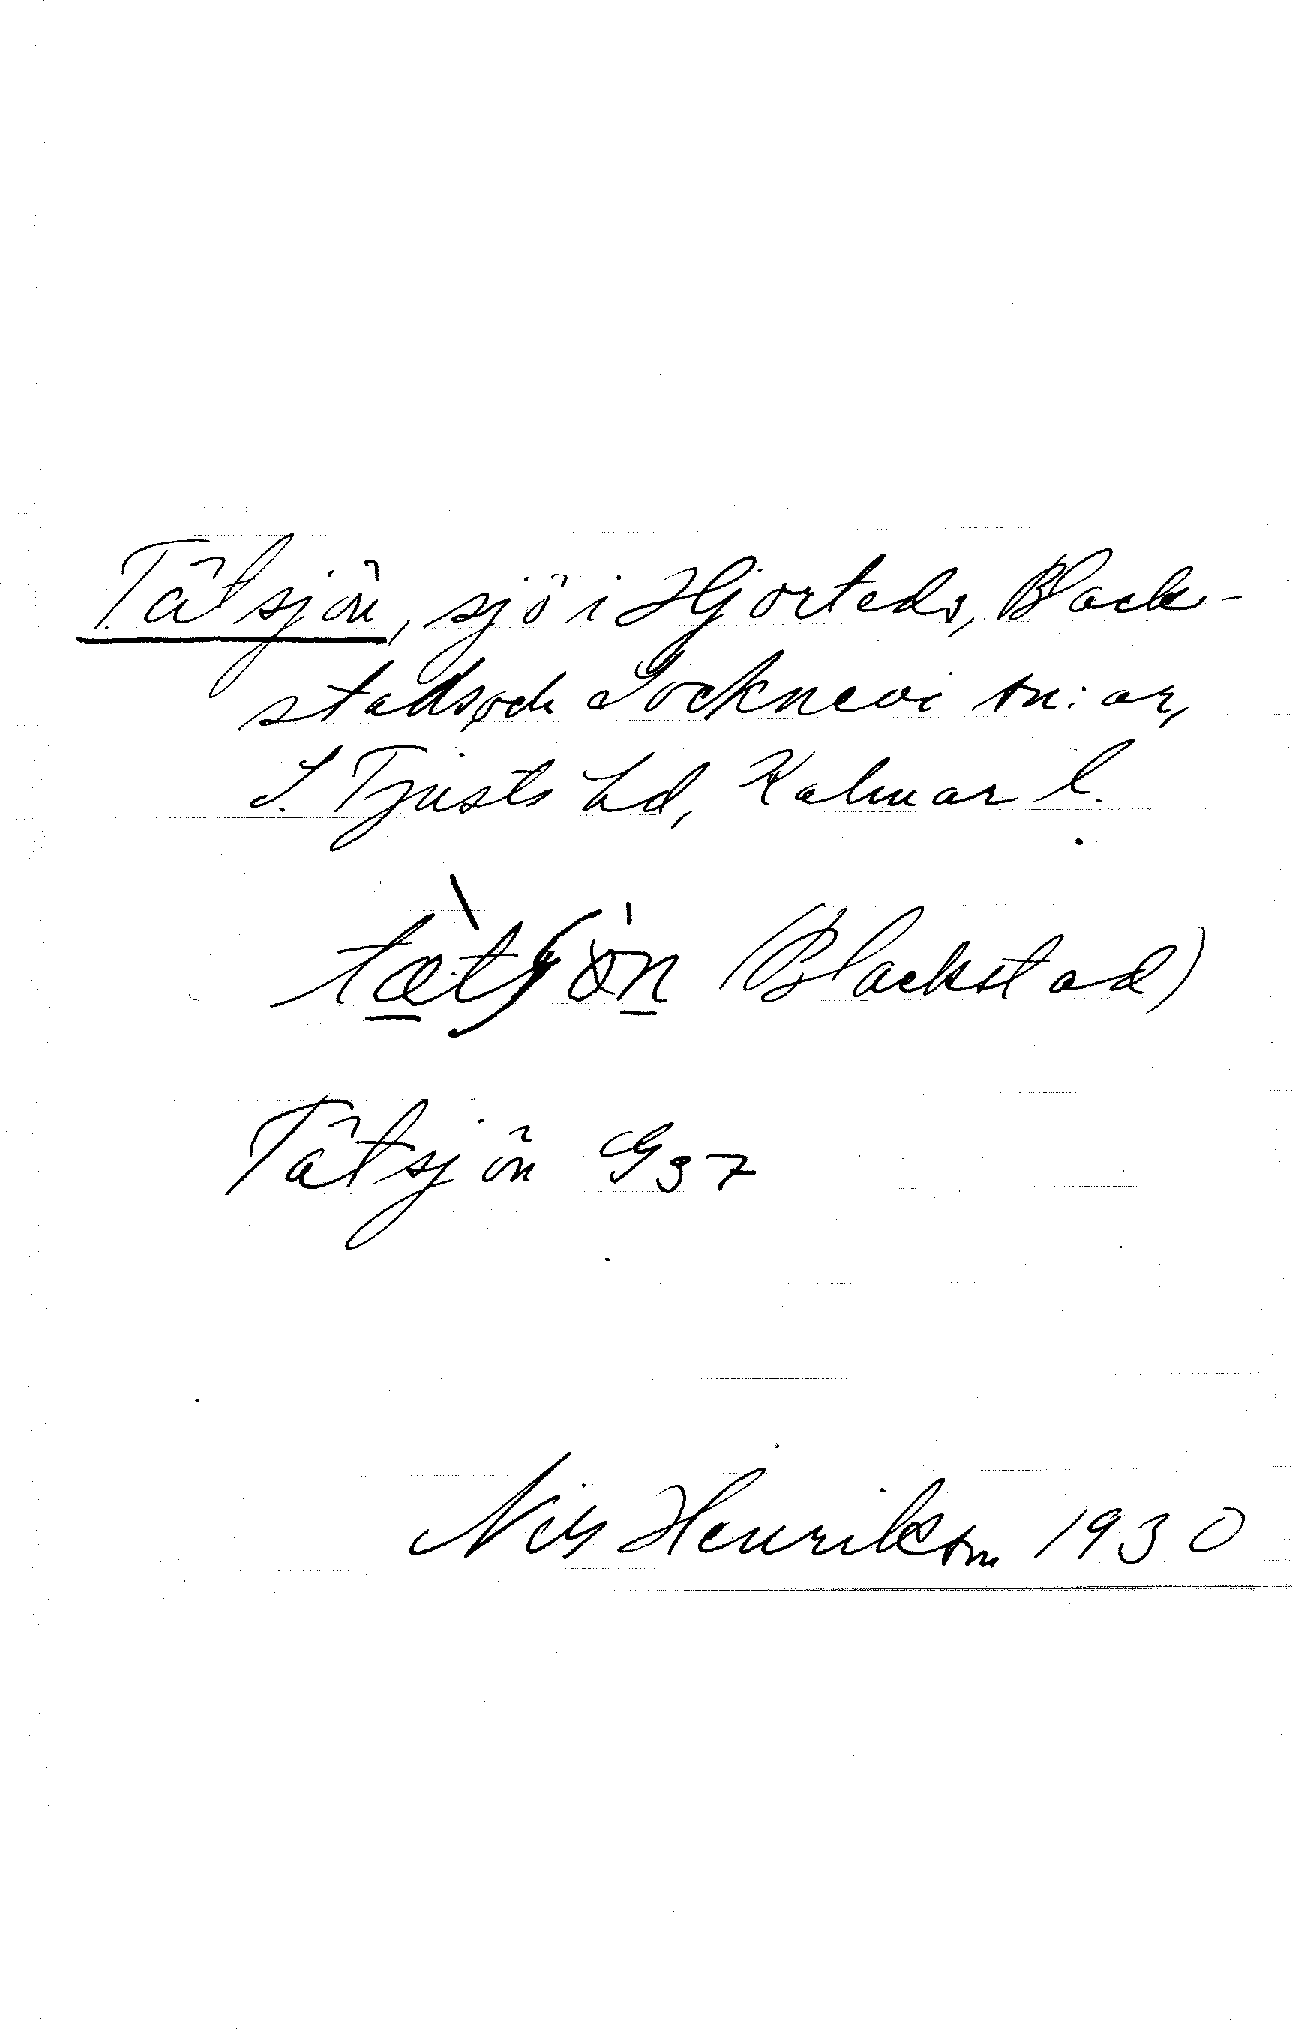 Tätsjön, sjö i Hjorteds, Black-
stads och Locknevi sn:ar,
S. Tjusts hd, Kalmar l.
(Blackstad)
Tätsjön G37
Nils Henrikson 1930